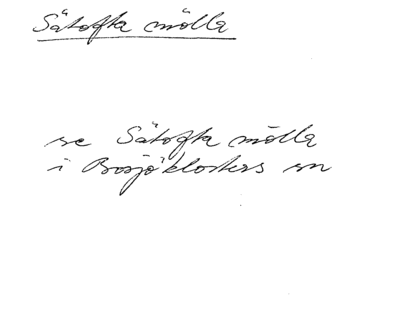 Sätofta mölla
se Sätofta mölla
i Bosjöklosters sn